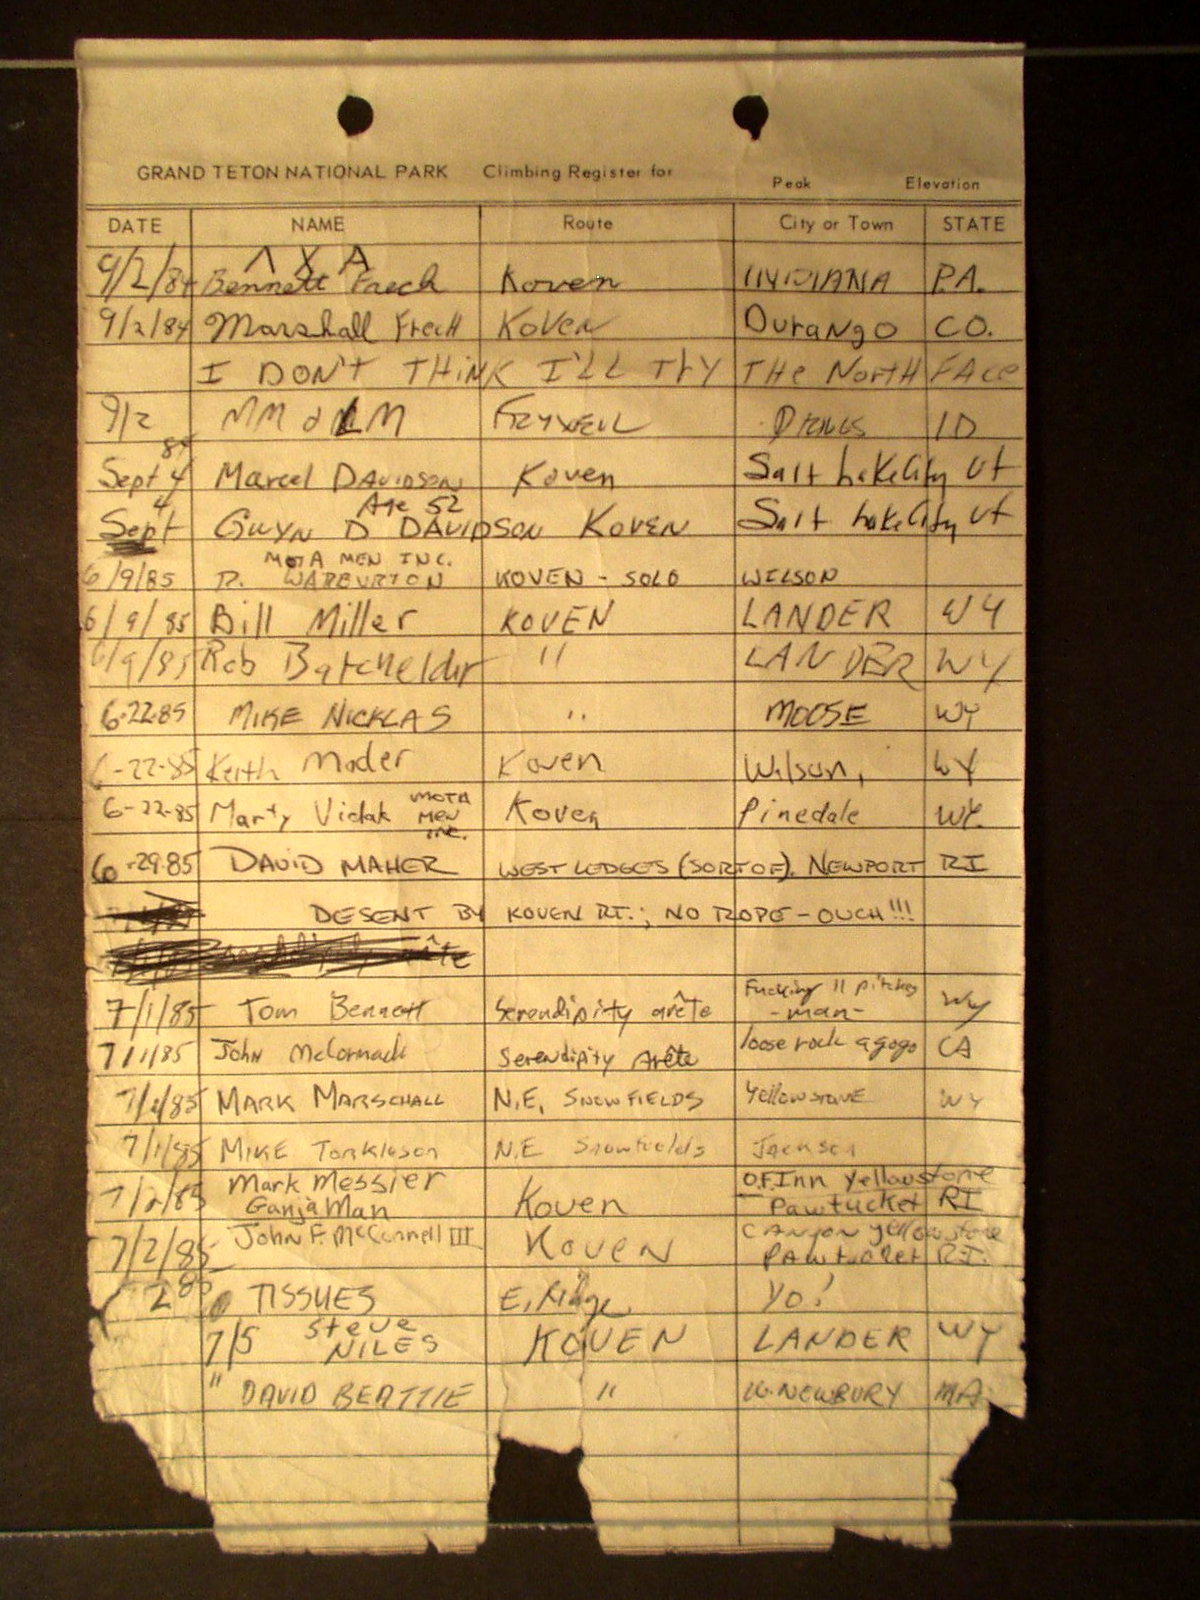 GRAND TETON NATIONAL PARK Climbing Register for Peak Elevation
DATE NAME Route City or Town STATE
Λ X A
9/2/84 Bennett Koven INDIANA PA.
9/2/84 Marshall Frech Koven Durango CO.
I DON'T THINK I'LL TRY THE NORTH FACE
9/2 FRYXELL ID
Sept 4 84 Marcel DAVIDSON Koven Salt Lake City Ut
Age 52
Sept 4 GWYN D DAVIDSON KOVEN Salt Lake City Ut
MOTA MEN INC.
6/9/85 R. WARBURTON KOVEN - SOLO WILSON
6/9/85 Bill Miller KOVEN LANDER WY
6/9/85 Rob Batchelder " LANDER WY
6-22-85 MIKE NICKLAS " MOOSE WY
6-22-85 Keith Moder Koven Wilson, WY
6-22-85 Marty Vidak MOTA MEN INC. Koven Pinedale WY.
6-29-85 DAVID MAHER WEST LEDGES (SORT OF). NEWPORT RI
DESENT BY KOVEN RT.; NO ROPE - OUCH!!!
7/1/85 Tom Bennett Serendipity arête Fucking 11 pitches -man- Wy
7/1/85 John McCormack Serendipity Arête loose rock a gogo CA
7/1/85 MARK MARSCHALL N.E. SNOWFIELDS YELLOWSTONE WY
7/1/85 MIKE N.E Snowfields Jackson
7/2/85 Mark Messier GanjaMan Koven O.F.Inn Yellowstone Pawtucket RI
7/2/85 John F. McConnell III KOVEN CANYON yellowstone PAWtucket R.I.
2 85 TISSUES E. Ridge Yo!
7/5 Steve NILES KOVEN LANDER WY
" DAVID BEATTIE " W. NEWBURY MA